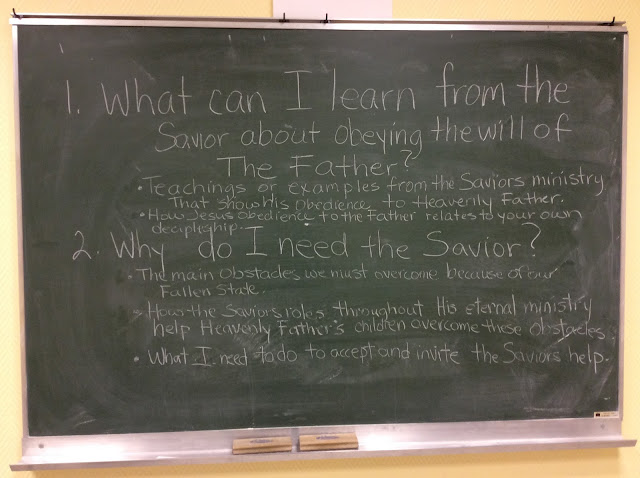 1. What can I learn from the
Savior about obeying the will of
The Father?
• Teachings or examples from the Saviors ministry
That show His obedience to Heavenly Father.
• How Jesus obedience to the Father relates to your own
decipleship.
2. Why do I need the Savior?
• The main obstacles we must overcome because of our
Fallen State.
• How the Saviors roles throughout His eternal ministry
help Heavenly Father's children overcome these obstacles.
• What I need to do to accept and invite the Saviors help.